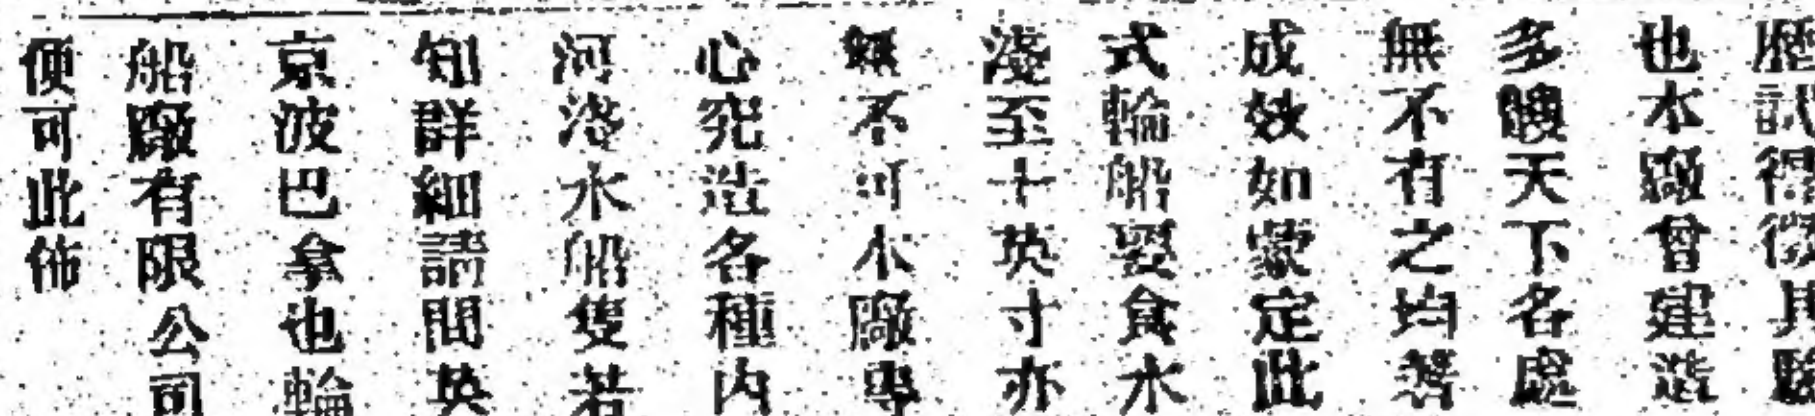 歷試得徵其驗
也本廠曾建造
多艘天下名處
無不有之均著
成效如蒙定此
式輪船要食水
淺至十英寸亦
無不可本廠專
心究造各種內
河淺水船隻若
知詳細請問英
京波巴拿也輪
船廠有限公司
便可此佈